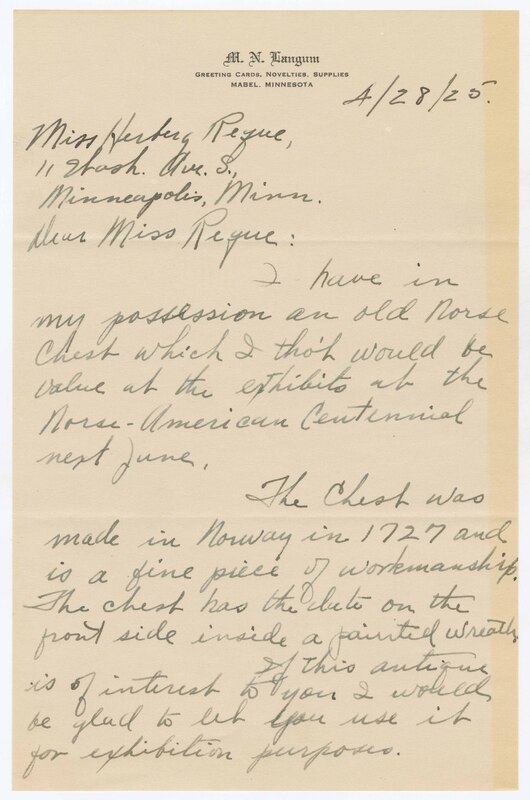 M. N. Langum
Greeting Cards, Novelties, Supplies
Mabel, Minnesota
4/28/25.
Miss Herberg Reque,
11 Wash. Ave. S.,
Minneapolis, Minn.
Dear Miss Reque:
I have in
my possession an old Norse
Chest which I tho't would be
value at the exhibits at the
Norse-American Centennial
next June.
The Chest was
made in Norway in 1727 and
is a fine piece of workmanship.
The chest has the date on the
front side inside a painted wreath.
If this antique
is of interest to you I would
be glad to let you use it
for exhibition purposes.